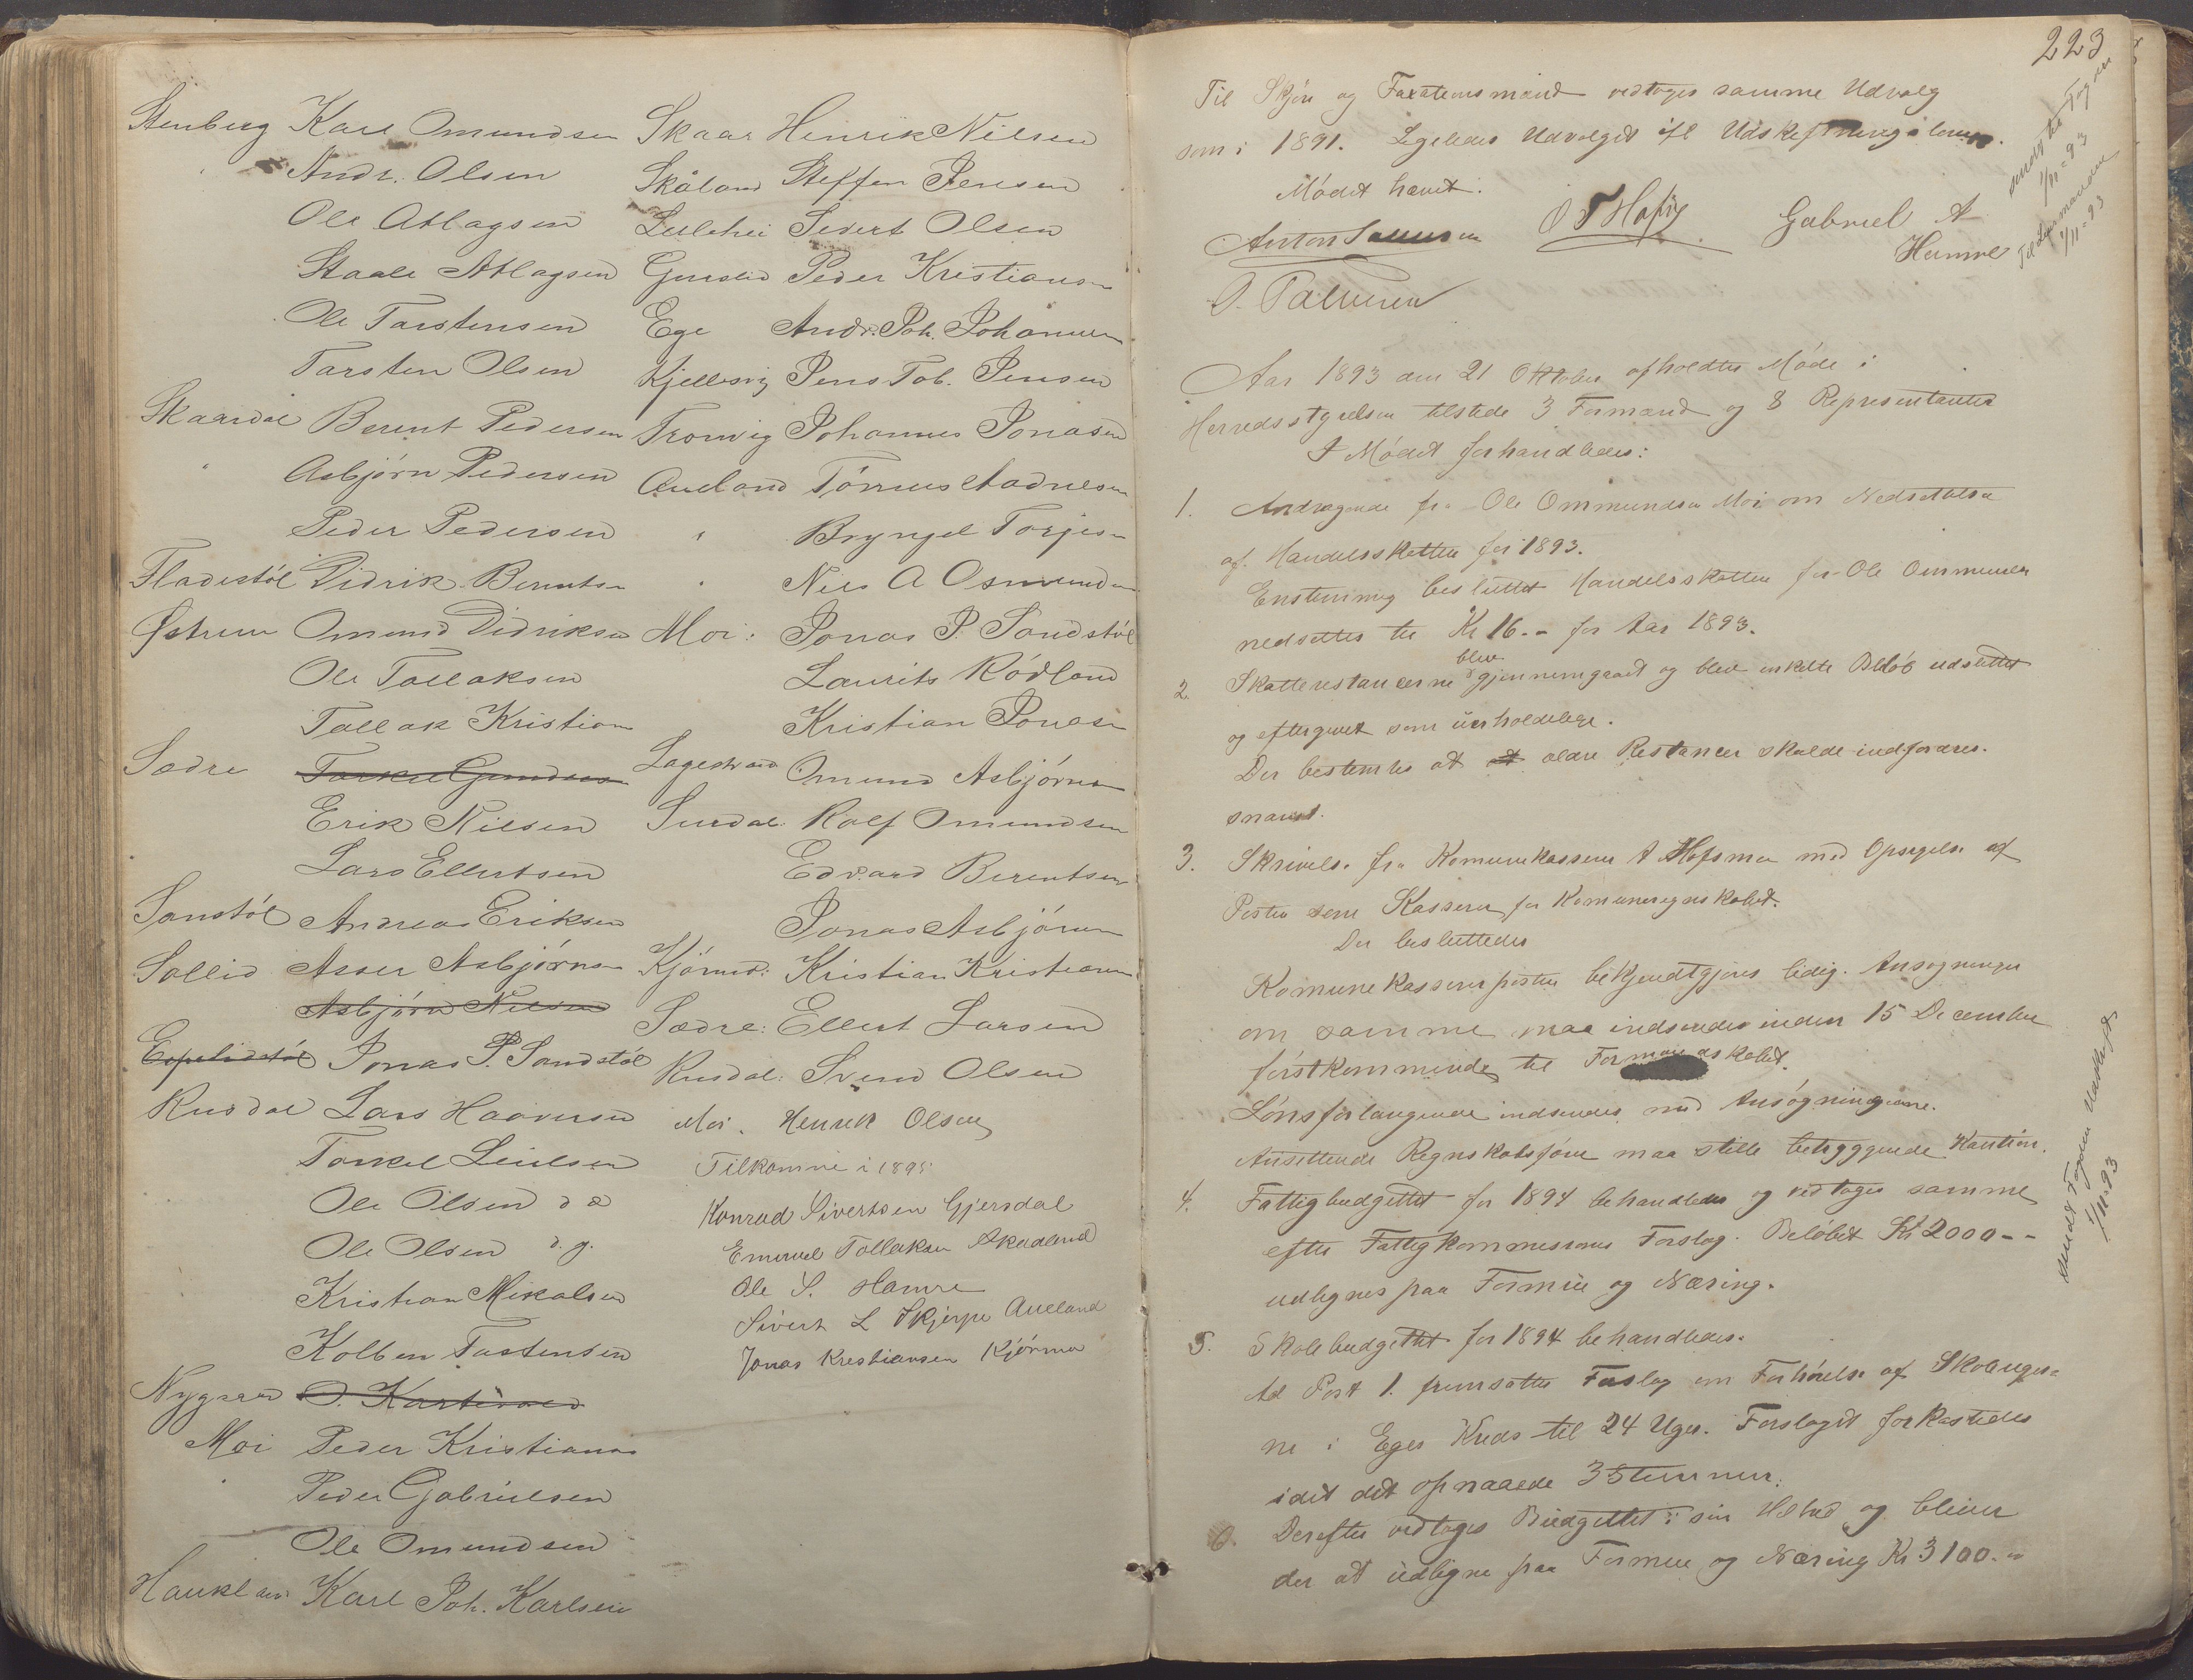 Stenberg Karl Omundsen
" Andr. Olsen
Ole Atlagsen
Staale Atlagsen
Ole Tarstensen
Tarsten Olsen
Skaardal Berent Pedersen
" Asbjörn Pedersen
Peder Pedersen
Fladestöl Didrik Berntsen
Østrem Omund Didriksen
Ole Tollaksen
Tollak Kristian
Sædre
Erik Nilsen
Lars Ellertsen
Sanstöl Andreas Eriksen
Sollid Asser Asbjørns
Asbjørn Nilsen
Espelidstöl Jonas P. Sandstöl
Rusdal Lars Haaversen
Torkel Leulsen
Ole Olsen d æ
Ole Olsen d. y.
Kristian Mikalsen
Kolben Tastensen
Nygaard
Moi Peder Kristians
Peder Gabrielsen
Ole Omundsen
Haukland Karl Joh. Karlsen
Skaar Henrik Nilsen
Skåland Steffen Jensen
Sivert Olsen
Peder Kristiansen
Ege Andr. Joh. Johannesen
Kjellesvig Jens Tob. Jensen
Tronvig Johannes Jonasen
Aueland Tönnes Aadnesen
" Bryngel Torjesen
" Nils A Osmundsen
Moi: Jonas P. Sandstöl
Laurits Rödland
Kristian Jonasen
Lagestrand Omund Asbjörnsen
Surdal: Rolf Omundsen
Edvard Berentsen
Jonas Asbjörnsen
Kjörmo: Kristian Kristiansen
Sædre: Ellert Larsen
Rusdal: Svend Olsen
Moi. Henrik Olsen
Tilkomne i 1895
Konrad Sivertsen Gjersdal
Emanuel Tollaksen Skaaland
Ole S. Hamre
Sivert L Skjerpe Aueland
Jonas Kristiansen Kjörmo
223
Til Skjön og Taxationsmænd vedtoges samme Udvalg
som i 1891. Ligeledes Udvalget ifl Udskiftningsloven.
Mödet hævet.
O T Hafsøy Gabriel A
Hamre
Aar 1893 den 21 Oktober afholdtes Möde i
Herredsstyrelsen tilstede 3 Formænd og 8 Representanter
I Mödet forhandledes:
1. Andragende fra Ole Ommundsen Moi om Nedsættelse
af Handelsskatten for 1893.
Enstemmig besluttet Handelsskatten for Ole Ommundsen
nedsættes til Kr 16.- for Aar 1893.
2. Skatterestancerne blev gjennemgaaet og blev enkelte Belöb udslettet
og eftergivet som uerholdelige.
Der bestemtes at ældre Restancer skulde indfordres
snarest.
3. Skrivelse fra Komunekasserer A Hofsmo med Opsigelse af
Posten som Kasserer for Komuneregnskabet.
Der besluttedes
Komunekassererposten bekjendtgjöres ledig. Ansögninger
om samme maa indsendes inden 15 December
förstkommende til Formandskabet.
Lönsforlangende indsendes med Ansögningerne.
Ansættende Regnskabsförer maa stille betryggende Kaution.
4. Fattigbudgettet for 1894 behandledes og vedtoges samme
efter Fattigkommissionens Forslag. Belöbet Kr 2000--
udlignes paa Formue og Næring.
5. Skolebudgettet for 1894 behandledes.
Ad Post 1. fremsattes Forslag om Forhöielse af Skoleuger-
ne i Eges Kreds til 24 Uger. Forslaget forkastedes
idet det opnaaede 3 Stemmer.
6. Derefter vedtoges Budgettet i sin Helhed og bliver
der at udligne paa Formue og Næring Kr 3100.-
Til Lensmanden
1/11-93
sendt Fogden
1/11-93